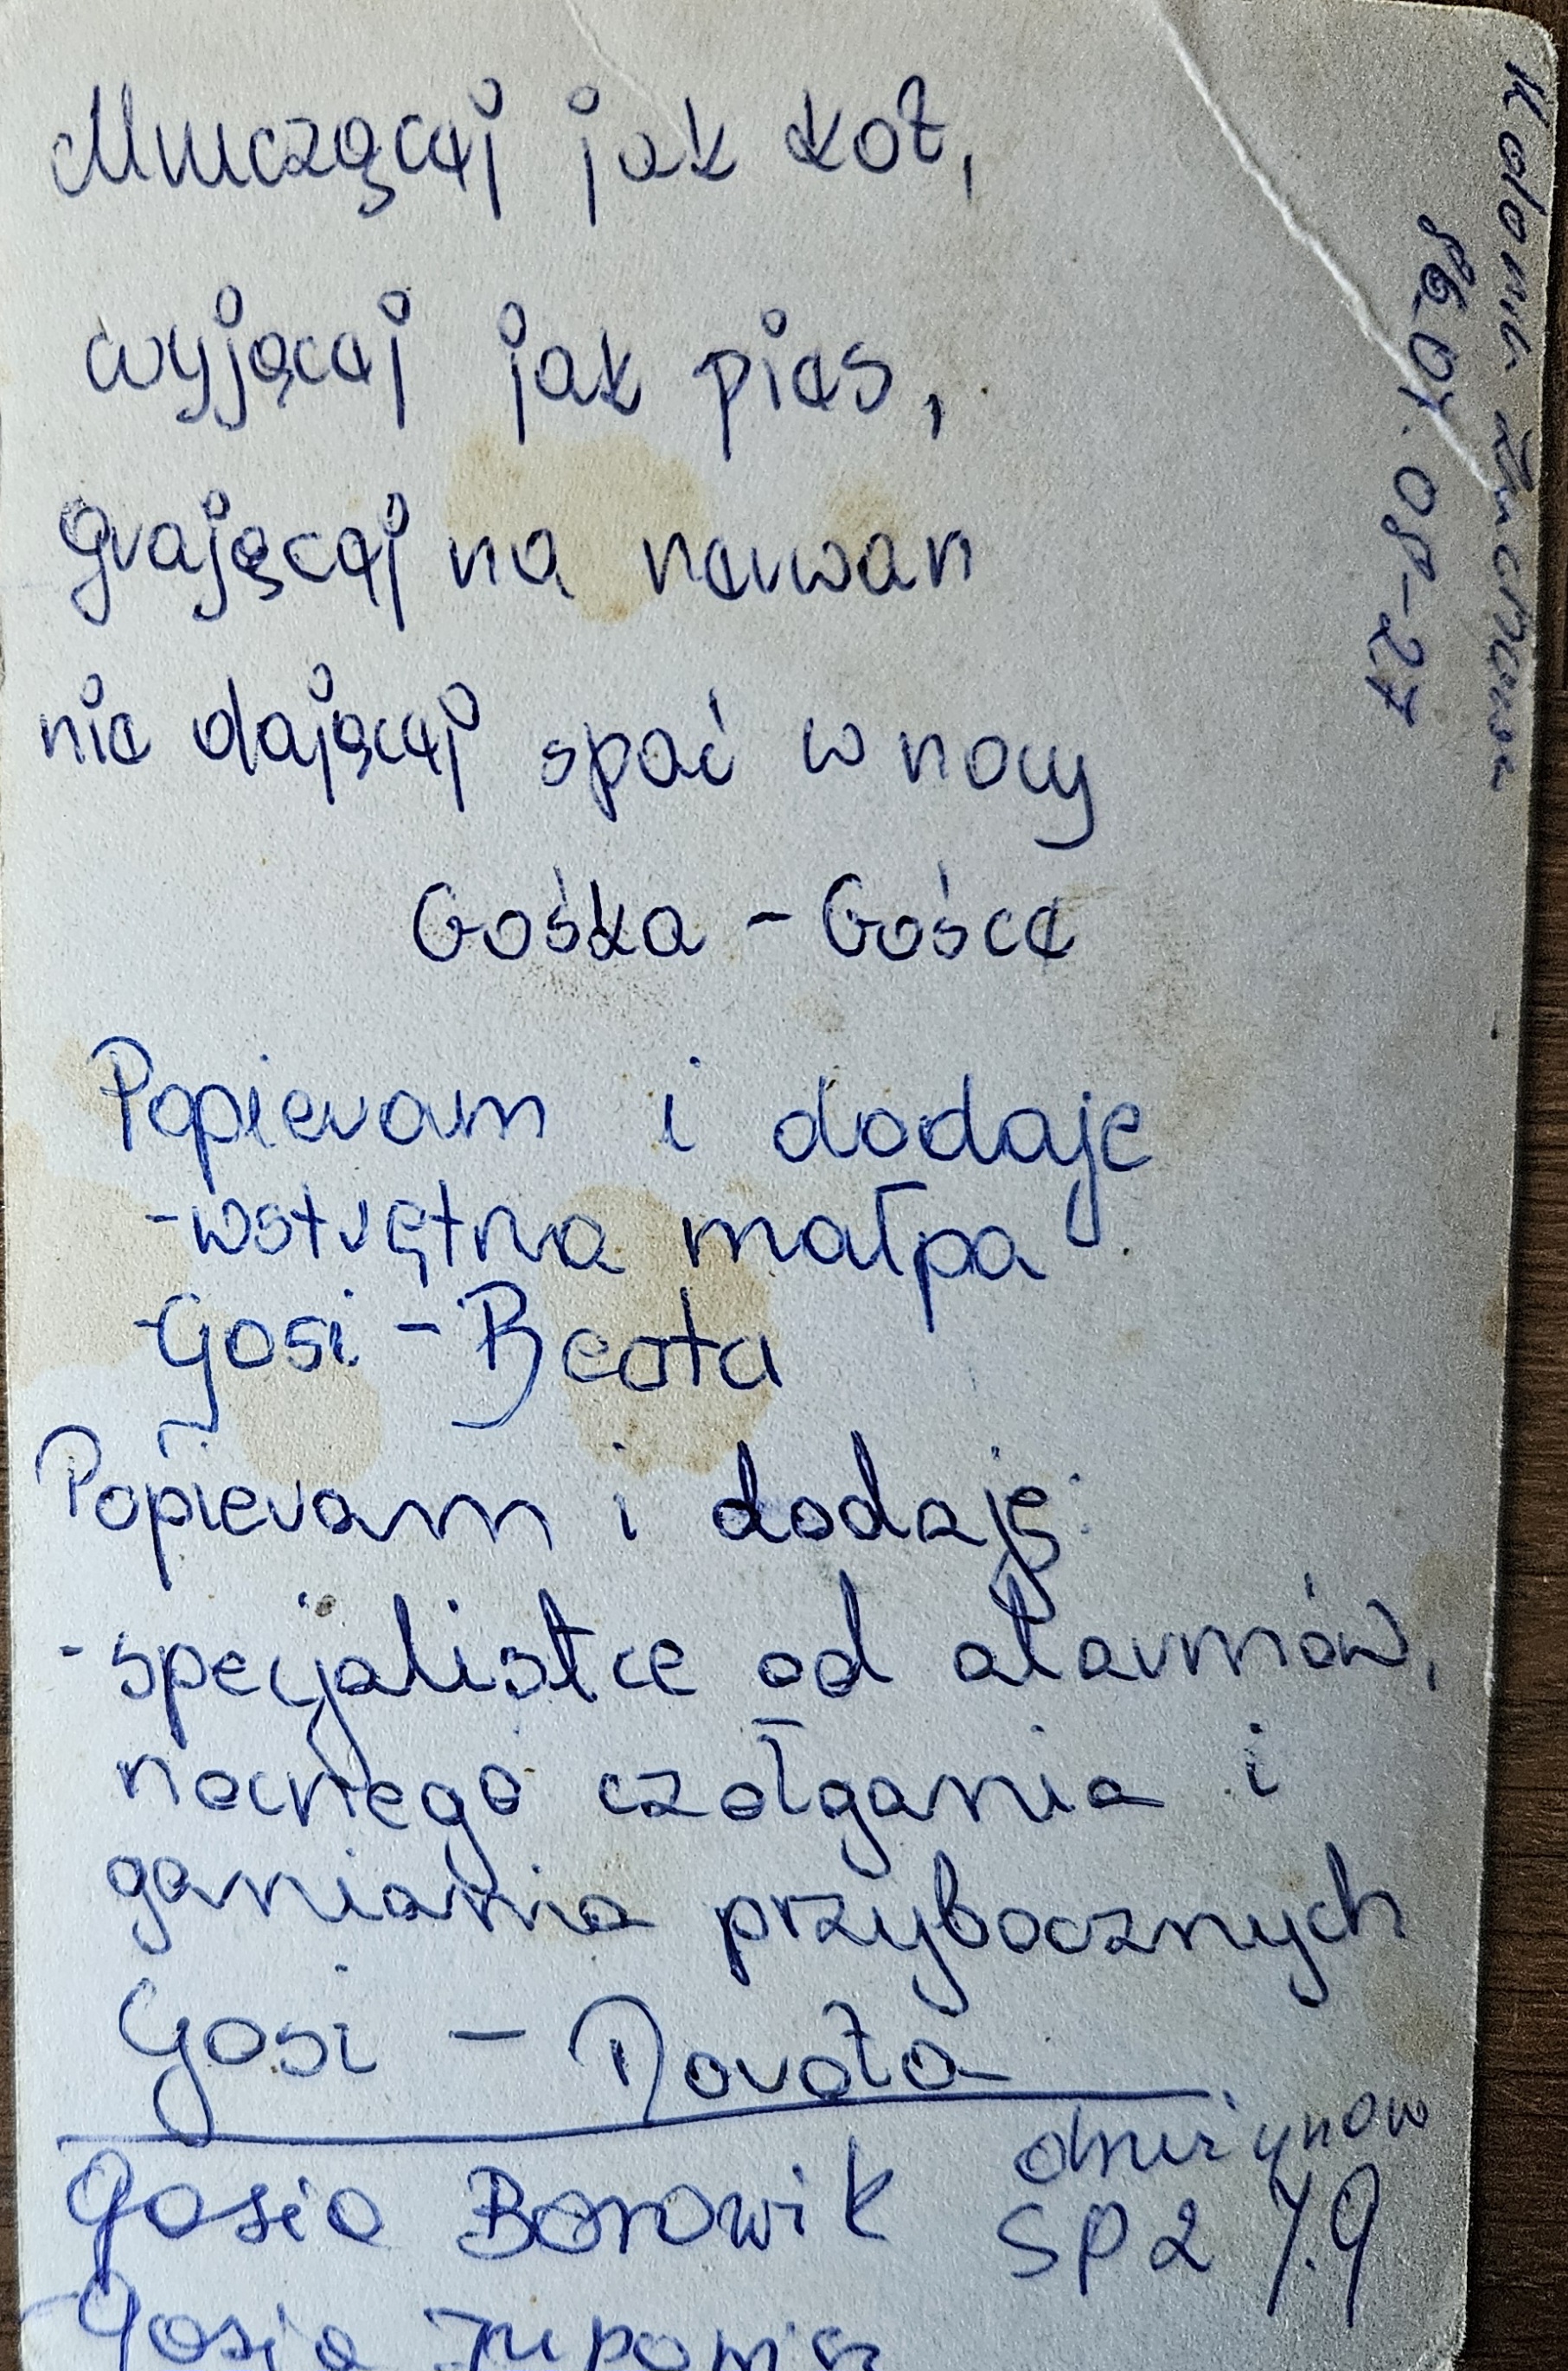 Mruczącej jak kot,
wyjącej jak pies,
grającej na nerwan
nie dającej spać w nocy
Gośka - Gośce
Popieram i dodaje
- wstrętna małpa
- Gosi - Beata
Popieram i dodaję:
- specjalistce od alarmów,
nocnego czołgania i
ganiania przybocznych
Gosi - Dorota
Gosia Borowik drużynow
SP 2 7.9
Gosia
Kolonia Zuchowa
86.07.08-27